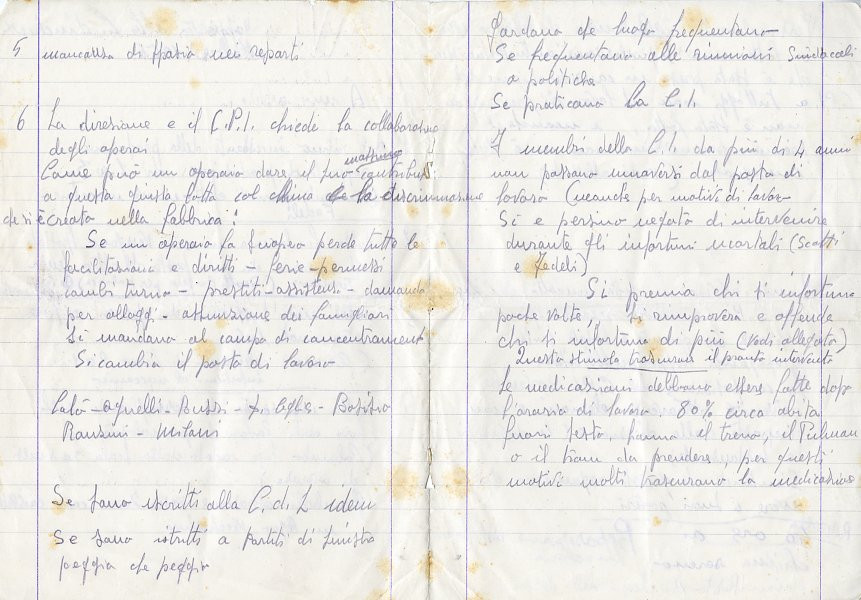 5 mancanza di spazio nei reparti
6 La direzione e il C.P.I. chiede la collaborazione
degli operai
Come può un operaio dare il suo massimo contributo
a questa giusta lotta col clima de la discriminazione
che si è creato nella fabbrica:
Se un operaio fa sciopero perde tutte le
facilitazioni e diritti - ferie - permessi
cambi turno - prestiti - assistenze - domanda
per alloggi - assunzione dei famigliari
Si mandano al campo di concentramento
Si cambia il posto di lavoro
Calò - Agnelli - Bussi -
Ranzini - Milani
Se sono iscritti alla C. d. L idem
Se sono iscritti a Partiti di sinistra
peggio che peggio
Se frequentano alle riunioni sindacali
o politiche
Se praticano la C.I.
I membri della C.I. da più di 4 anni
non possono muoversi dal posto di
lavoro (neanche per motivi di lavoro
Si è persino negato di intervenire
durante gli infortuni mortali (Scotti
e Fedeli)
Si premia chi si infortuna
poche volte, si rimprovera e offende
chi si infortuna di più (vedi allegato)
Questo stimola trascurare il pronto intervento
Le medicazioni debbono essere fatte dopo
l'orario di lavoro. 80% circa abita
fuori sesto, hanno il treno, il Pulman
o il tram da prendere, per questi
motivi molti trascurano la medicazione